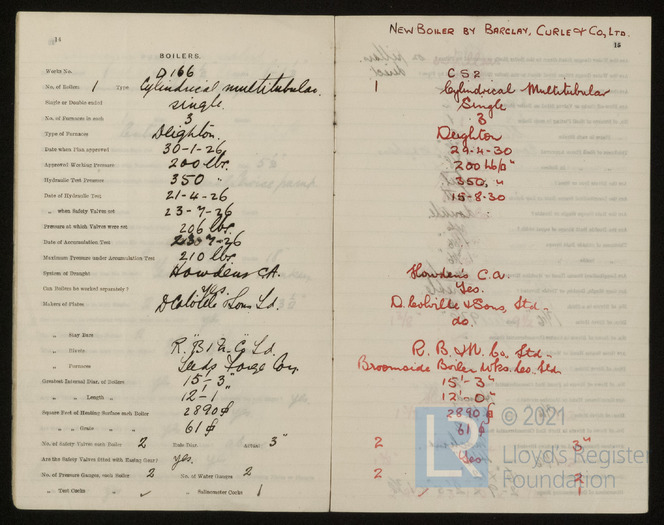 14
BOILERS.
Works No. D 166
No. of Boilers 1 Type Cylindrical multitubular.
Single or Double ended single.
No. of Furnaces in each 3
Type of Furnaces Deighton.
Date when Plan approved 30-1-26
Approved Working Pressure 200 lbs.
Hydraulic Test Pressure 350 "
Date of Hydraulic Test 21-4-26
" when Safety Valves set 23-7-26
Pressure at which Valves were set 206 lbs.
Date of Accumulation Test 23-7-26
Maximum Pressure under Accumulation Test 210 lbs.
System of Draught Howdens
Can Boilers be worked separately? Yes.
Makers of Plates D Colville & Sons Ld.
" Stay Bars
" Rivets R. B. & N. Co Ld.
" Furnaces Leeds Forge Coy.
Greatest Internal Diam. of Boilers 15'-3"
" " Length " 12-1"
Square Feet of Heating Surface each Boiler 2890
" " Grate " " 61
No. of Safety Valves each Boiler 2 Each Diam. Actual 3"
Are the Safety Valves fitted with Easing Gear? Yes.
No. of Pressure Gauges, each Boiler 2 No. of Water Gauges 2
" Test Cocks " ✓ " Salinometer Cocks 1
NEW BOILER BY BARCLAY, CURLE & CO, LTD.
15
C 52
1 Cylindrical Multitubular
Single
3
Deighton
29-4-30
200 lb/□"
350, "
15-8-30
Howden's C.A.
Yes.
D. Colville & Sons, Ltd.
do.
R. B. & N. Co. Ltd.
Broomside Boiler Wks. Co. Ltd.
15'-3"
12'-0"
2890
61
2 3"
Yes
2 2
1
LR © 2021
Lloyd's Register
Foundation